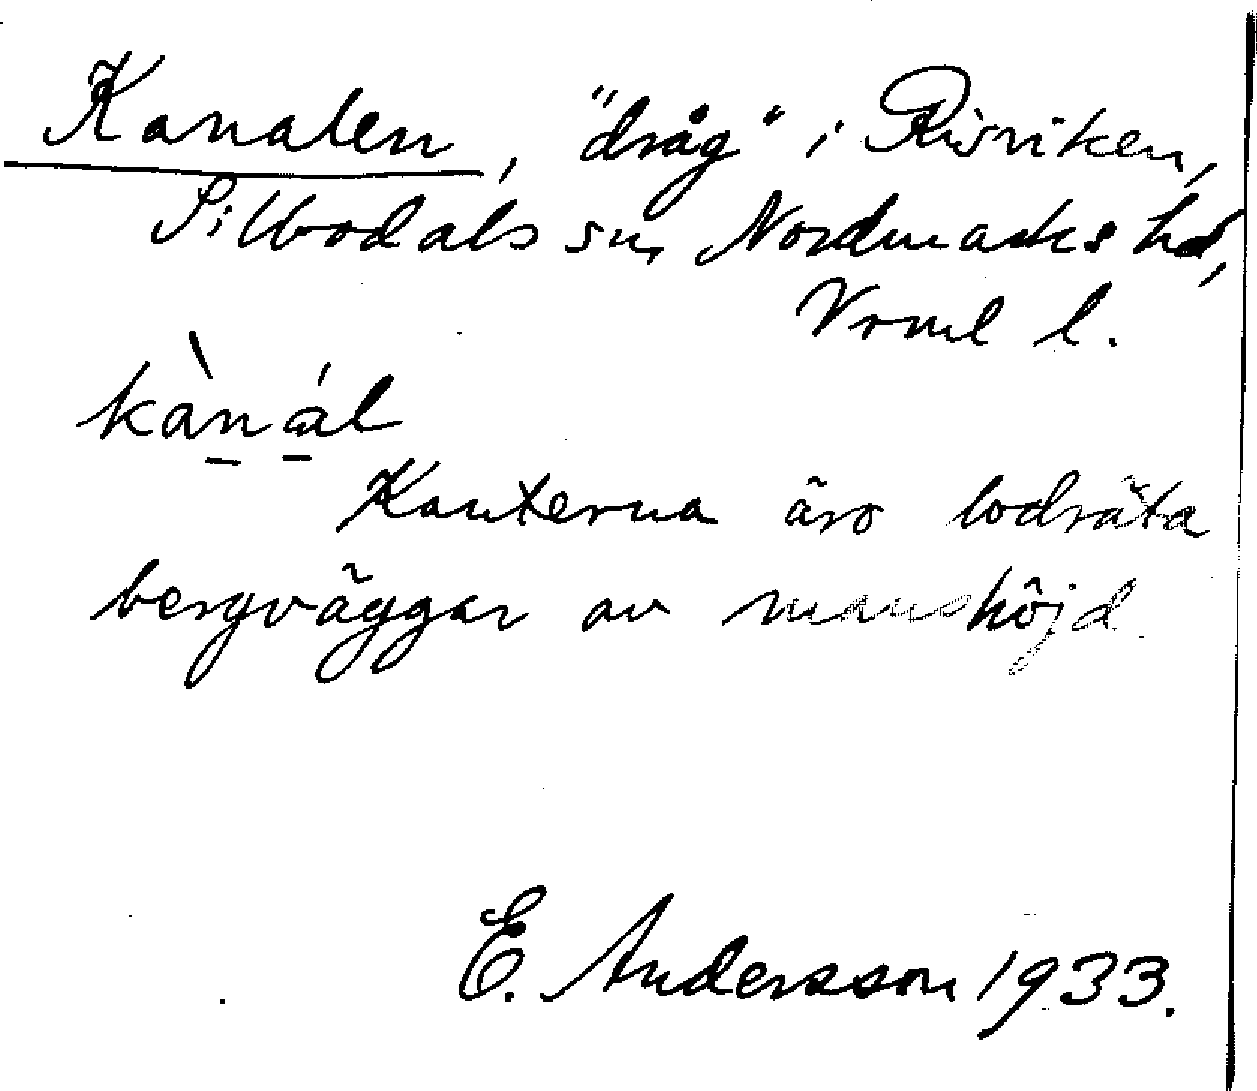 Kanalen, "dråg" i Risviken,
Silbodals sn, Nordmarks hd,
Vrml l.
kànál
Kanterna äro lodräta
bergväggar av manshöjd.
E. Andersson 1933.